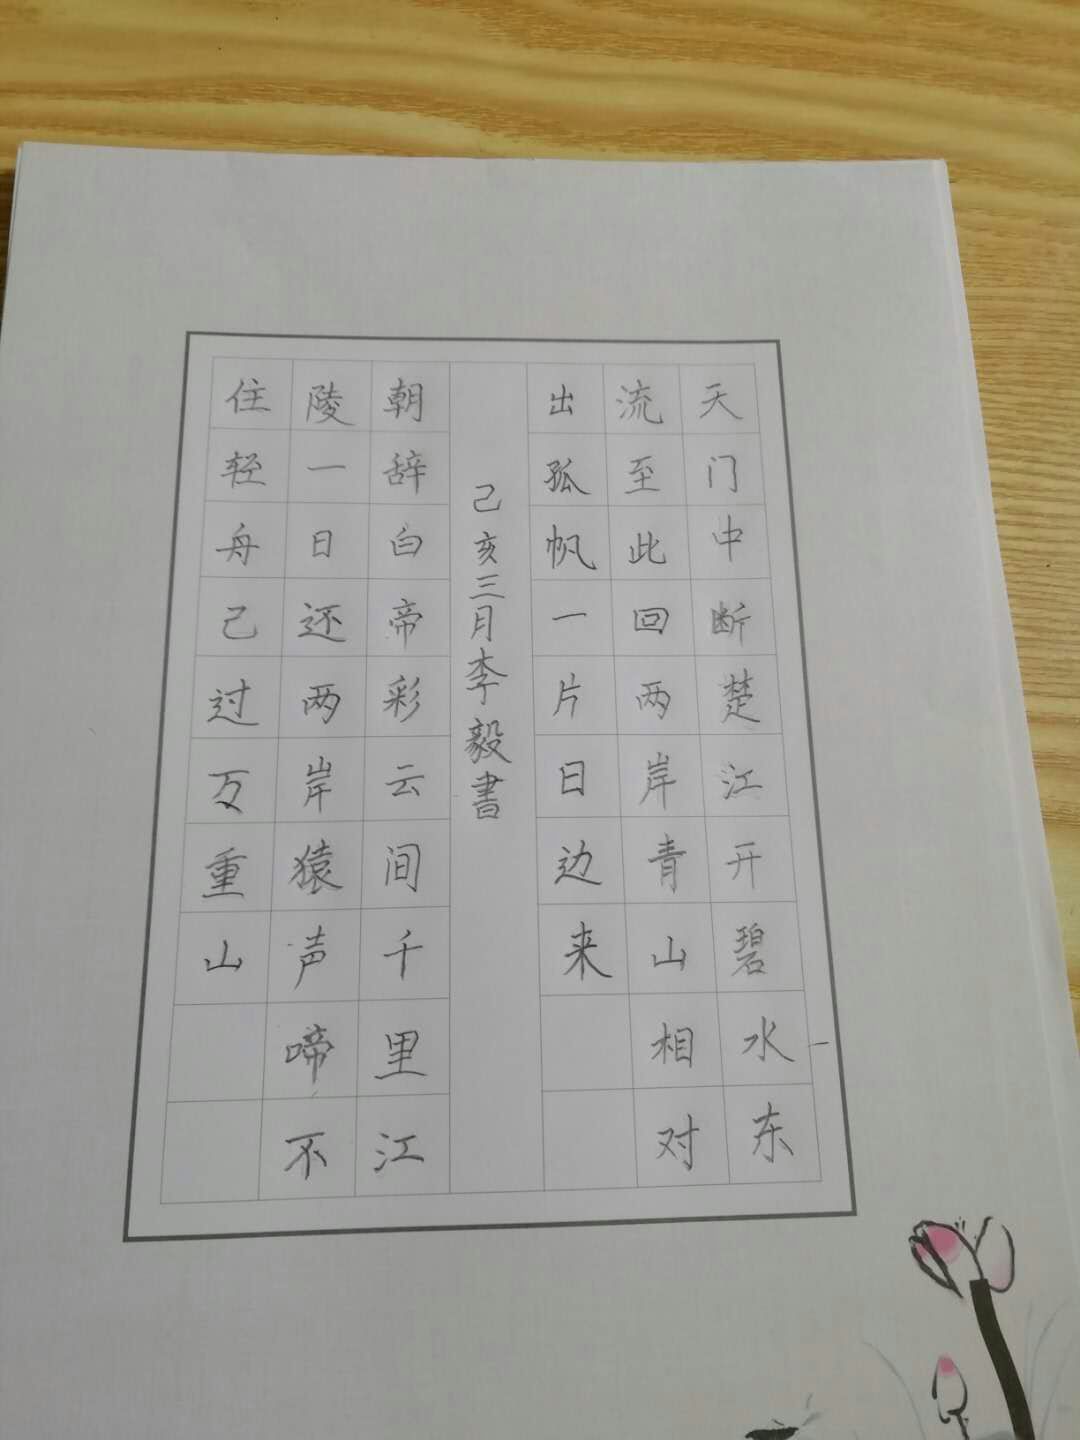 天门中断楚江开碧水东
流至此回两岸青山相对
出孤帆一片日边来
己亥三月李毅書
朝辞白帝彩云间千里江
陵一日还两岸猿声啼不
住轻舟己过万重山